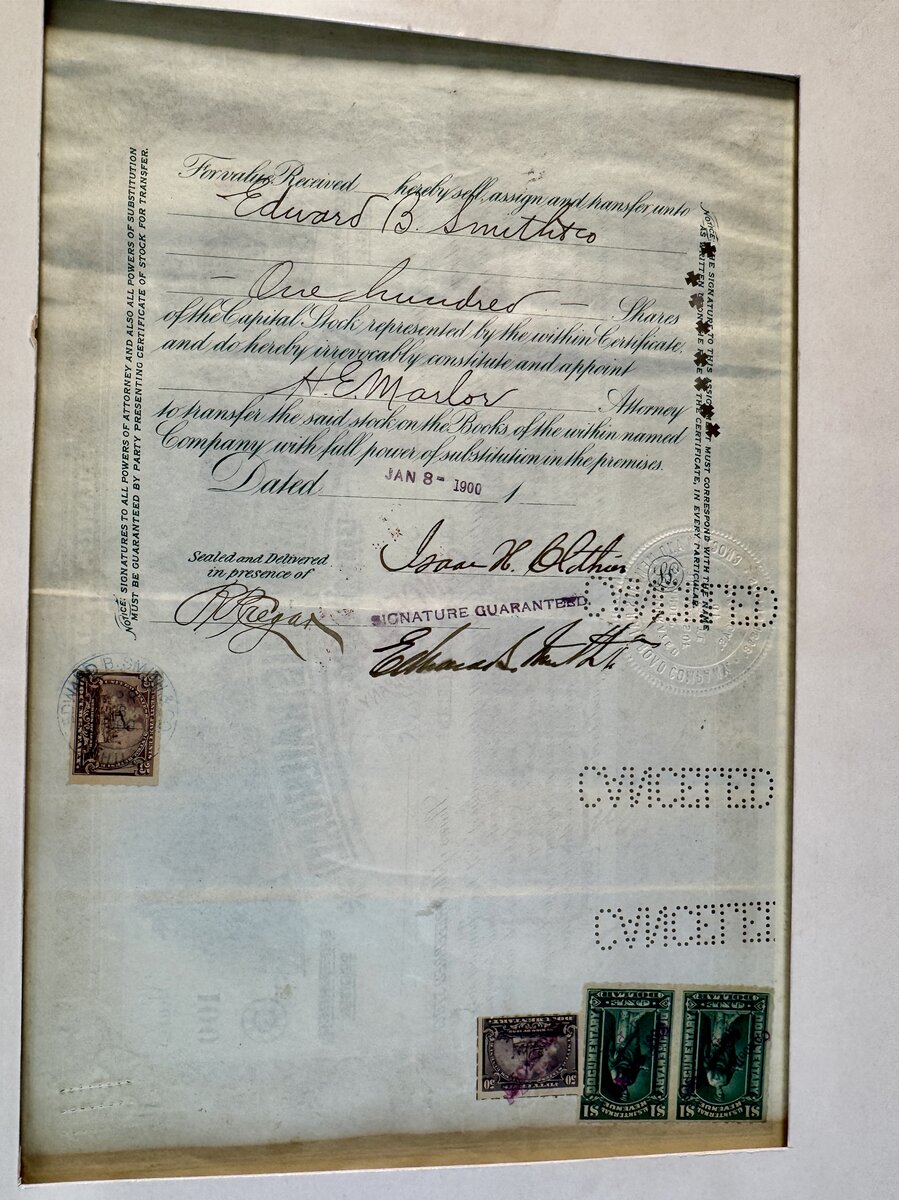 For value Received hereby sell, assign and transfer unto
Edward B. Smith & Co
One hundred Shares
of the Capital Stock represented by the within Certificate,
and do hereby irrevocably constitute and appoint
H. E. Marlor Attorney
to transfer the said stock on the Books of the within named
Company with full power of substitution in the premises.
Dated JAN 8- 1900 1
Isaac H. Clothier
Sealed and Delivered
in presence of
SIGNATURE GUARANTEED
Edward B. Smith & Co
NOTICE. SIGNATURES TO ALL POWERS OF ATTORNEY AND ALSO ALL POWERS OF SUBSTITUTION
MUST BE GUARANTEED BY PARTY PRESENTING CERTIFICATE OF STOCK FOR TRANSFER.
NOTICE. THE SIGNATURE TO THIS ASSIGNMENT MUST CORRESPOND WITH THE NAME
AS WRITTEN UPON THE FACE OF THE CERTIFICATE, IN EVERY PARTICULAR.
CANCELLED
CANCELLED
CANCELLE
EDWARD B. SMITH & CO
DOCUMENTARY
50 50
ONE DOLLAR
DOCUMENTARY DOCUMENTARY
U.S. INTERNAL REVENUE
$1 $1
ONE DOLLAR
DOCUMENTARY DOCUMENTARY
U.S. INTERNAL REVENUE
$1 $1